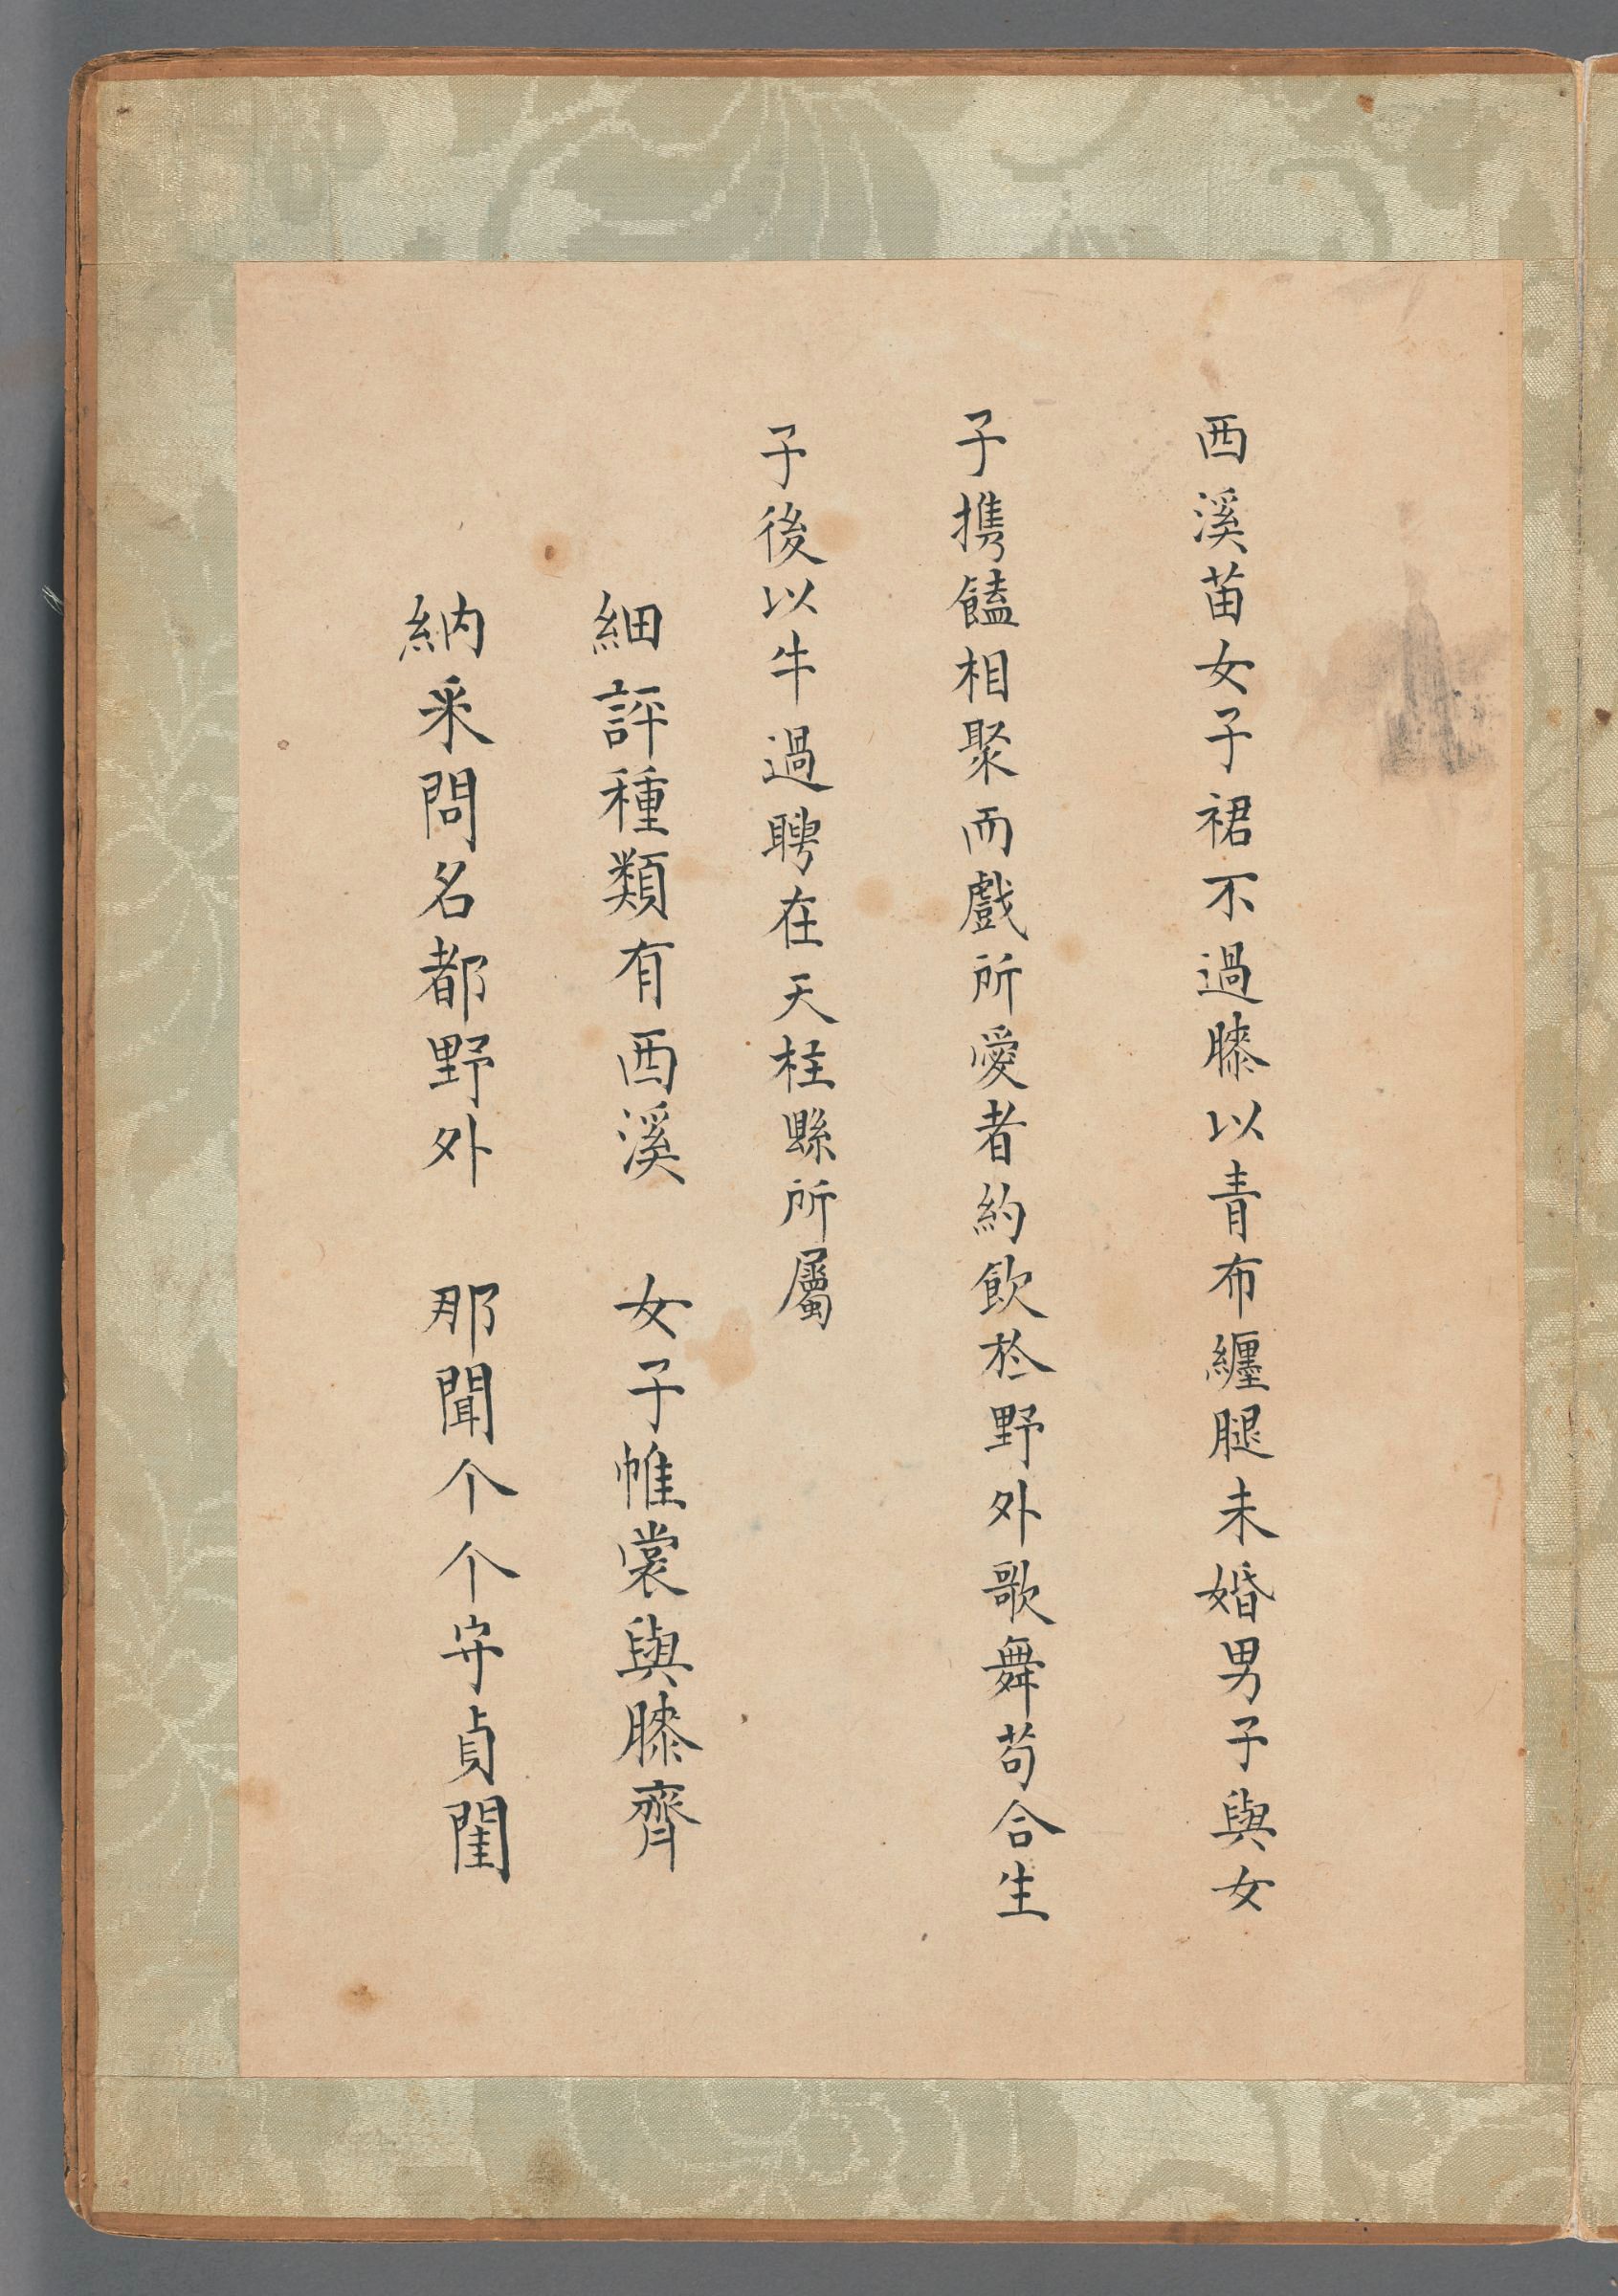 西溪苗女子裙不過膝以青布纏腿未婚男子與女
子携饁相聚而戲所愛者約飲於野外歌舞苟合生
子後以牛過聘在天柱縣所屬
細評種類有西溪　女子帷裳與膝齊
納采問名都野外　那聞个个守貞閨